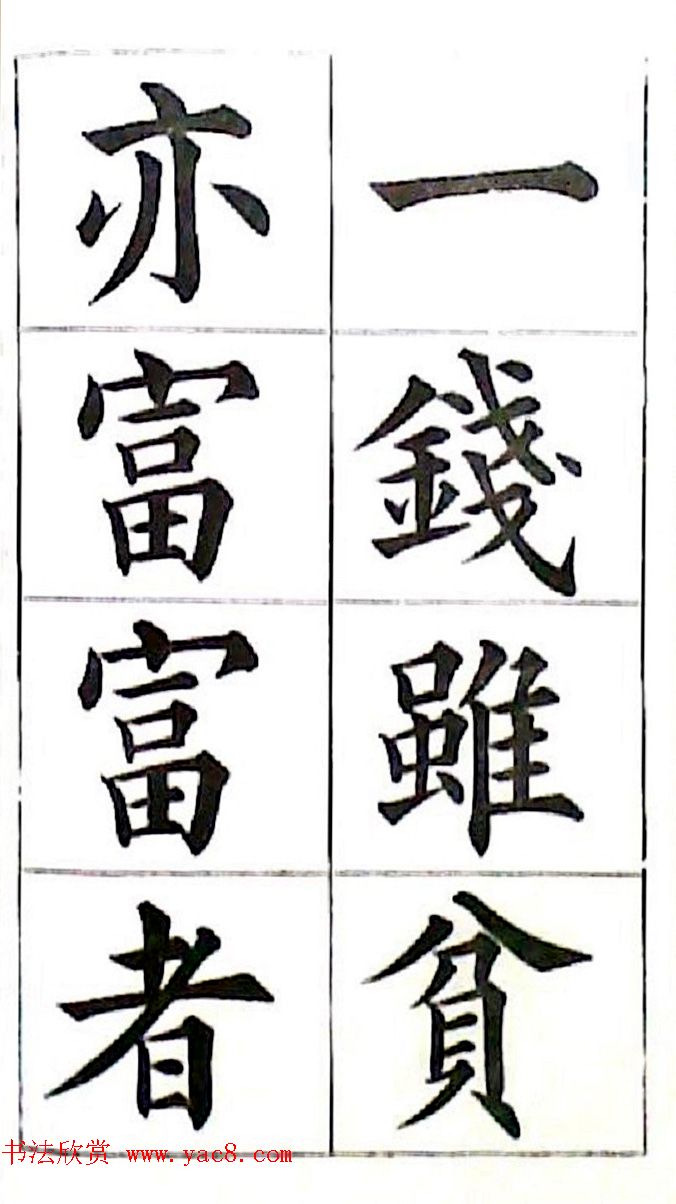 一錢雖貧
亦富富者
书法欣赏 www.yac8.com